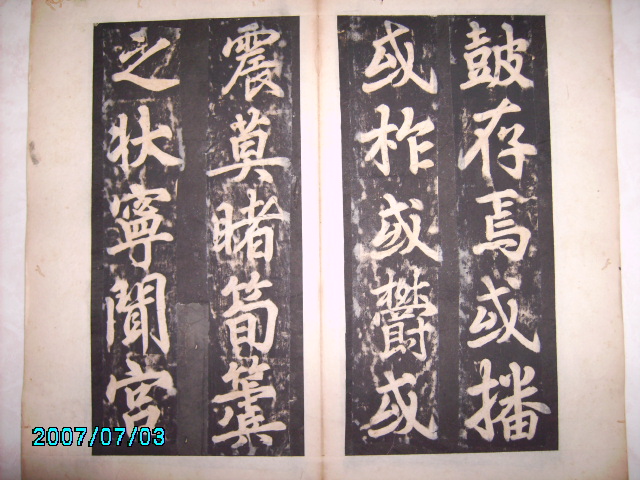 鼓存焉或播
或柞或鬱或
震莫睹筍簨
之狀寧聞宮
2007/07/03